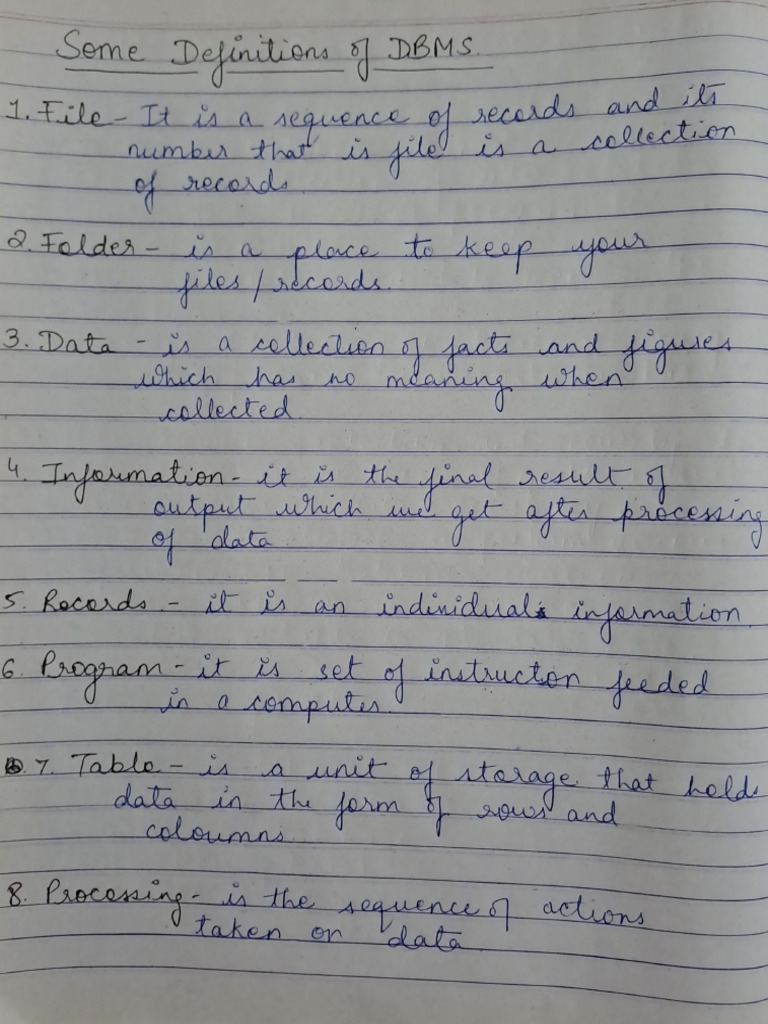 Some Definitions of DBMS.
1. File - It is a sequence of records and its
number that is file is a collection
of records.
2. Folder - is a place to keep your
files / records.
3. Data - is a collection of facts and figures
which has no meaning when
collected.
4. Information - it is the final result of
output which we get after processing
of data
5. Records - it is an individual information.
6. Program - it is set of instructon feeded
in a computer.
7. Table - is a unit of storage that holds
data in the form of rows and
coloumns.
8. Processing - is the sequence of actions
taken on data.